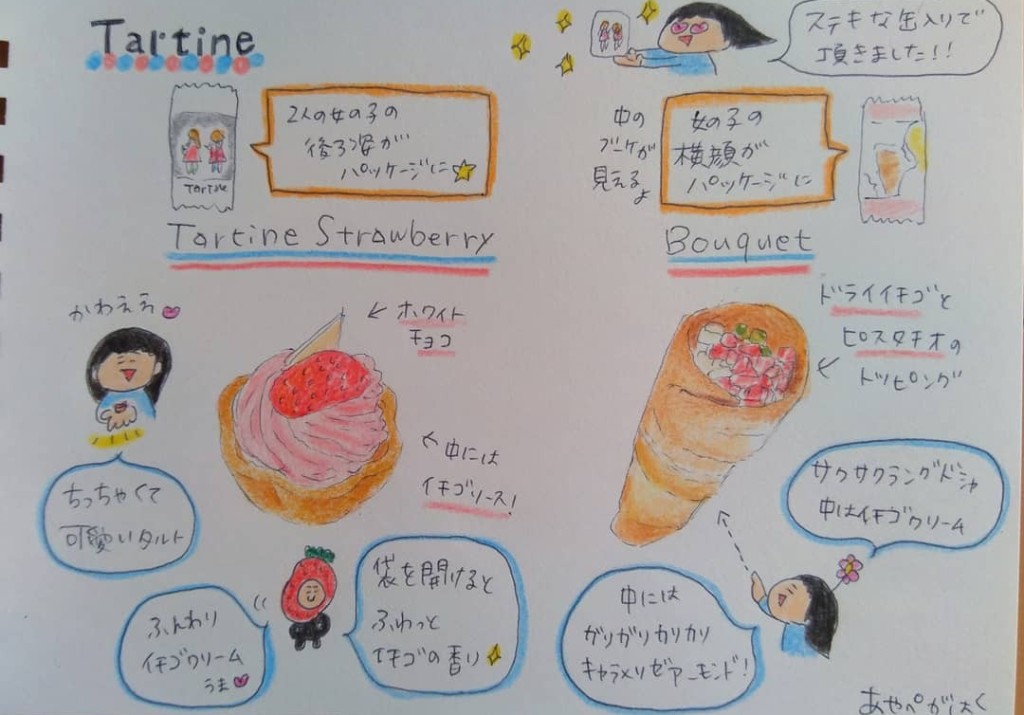 Tartine
ステキな缶入りで
頂きました!!
2人の女の子の
後ろ姿が
パッケージに
TarTine
中の
ブーケが
見える
よ
女の子の
横顔が
パッケージに
Tartine Strawberry
Bouquet
かわええ
ホワイト
チョコ
ドライイチゴと
ピスタチオの
トッピング
中には
イチゴソース!
ちっちゃくて
可愛いタルト
サクサクラングドシャ
中はイチゴクリーム
袋を開けると
ふわっと
イチゴの香り
ふんわり
イチゴクリーム
うま
中には
ガリガリカリカリ
キャラメリゼアーモンド!